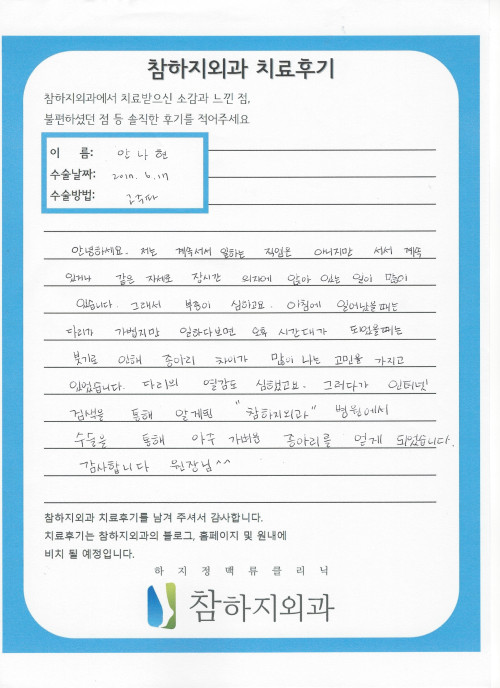 참하지외과 치료후기
참하지외과에서 치료받으신 소감과 느낀 점,
불편하셨던 점 등 솔직한 후기를 적어주세요
이 름: 안나현
수술날짜: 2017. 6. 17
수술방법: 고주파
안녕하세요. 저는 계속서서 일하는 직업은 아니지만 서서 계속
있거나 같은 자세로 장시간 의자에 앉아 있는 일이 많이
있습니다. 그래서 부종이 심하고요. 아침에 일어났을때는
다리가 가볍지만 일하다보면 오후 시간대가 되었을때는
붓기로 인해 종아리 차이가 많이 나는 고민을 가지고
있었습니다. 다리의 열감도 심했고요. 그러다가 인터넷
검색을 통해 알게된 "참하지외과" 병원에서
수술을 통해 아주 가벼운 종아리를 얻게 되었습니다.
감사합니다 원장님^^
참하지외과 치료후기를 남겨 주셔서 감사합니다.
치료후기는 참하지외과의 블로그, 홈페이지 및 원내에
비치 될 예정입니다.
하지정맥류클리닉
참하지외과